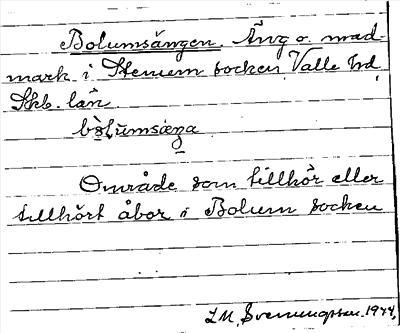 Bolumsängen. Äng o. mad-
mark i Stenum socken, Valle hd,
Skb. län
bòlumsæŋa
Område som tillhör eller
tillhört åbor i Bolum socken
I.M. Svenungsson. 1944,